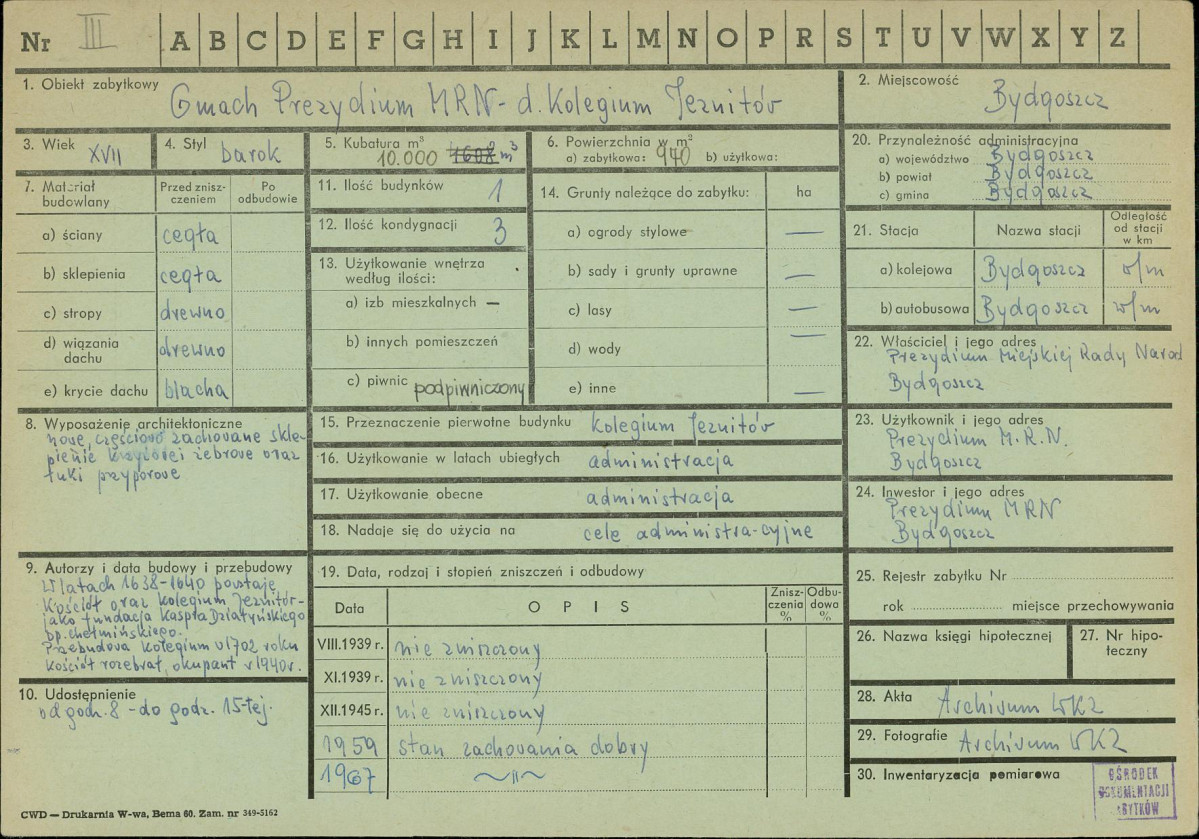 Nr III A B C D E F G H I J K L M N O P R S T U V W X Y Z
1. Obiekt zabytkowy
Gmach Prezydium MRN - d. Kolegium Jezuitów
2. Miejscowość
Bydgoszcz
3. Wiek XVII
4. Styl barok
5. Kubatura m³
10.000 m³
6. Powierzchnia w m²
a) zabytkowa: 940 b) użytkowa:
20. Przynależność administracyjna
a) województwo Bydgoszcz
b) powiat Bydgoszcz
c) gmina Bydgoszcz
7. Materiał budowlany
Przed zniszczeniem
Po odbudowie
a) ściany cegła
b) sklepienia cegła
c) stropy drewno
d) wiązania dachu drewno
e) krycie dachu blacha
11. Ilość budynków 1
12. Ilość kondygnacji 3
13. Użytkowanie wnętrza
według ilości:
a) izb mieszkalnych —
b) innych pomieszczeń
c) piwnic podpiwniczony
14. Grunty należące do zabytku: ha
a) ogrody stylowe —
b) sady i grunty uprawne —
c) lasy —
d) wody —
e) inne —
21. Stacja Nazwa stacji Odległość od stacji w km
a) kolejowa Bydgoszcz w/m
b) autobusowa Bydgoszcz w/m
22. Właściciel i jego adres
Prezydium Miejskiej Rady Narod
Bydgoszcz
8. Wyposażenie architektoniczne
nowe, częściowo zachowane skle-
pienie krzyżowe i żebrowe oraz
łuki przyporowe
15. Przeznaczenie pierwotne budynku Kolegium Jezuitów
16. Użytkowanie w latach ubiegłych administracja
17. Użytkowanie obecne administracja
18. Nadaje się do użycia na cele administra-cyjne
23. Użytkownik i jego adres
Prezydium M.R.N.
Bydgoszcz
24. Inwestor i jego adres
Prezydium MRN
Bydgoszcz
9. Autorzy i data budowy i przebudowy
W latach 1638-1640 powstaje
Kościół oraz kolegium Jezuitów-
jako fundacja Kaspra Działyńskiego
bp. chełmińskiego.
Przebudowa kolegium w 1702 roku
Kościół rozebrał, okupant w 1940 r.
10. Udostępnienie
od godz. 8 - do godz. 15-tej.
19. Data, rodzaj i stopień zniszczeń i odbudowy
Data OPIS Zniszczenia % Odbudowa %
VIII.1939 r. nie zniszczony
XI.1939 r. nie zniszczony
XII.1945 r. nie zniszczony
1959 stan zachowania dobry
1967 ~ıı~
25. Rejestr zabytku Nr
rok miejsce przechowywania
26. Nazwa księgi hipotecznej
27. Nr hipoteczny
28. Akta Archiwum WKZ
29. Fotografie Archiwum WKZ
30. Inwentaryzacja pomiarowa
OŚRODEK
DOKUMENTACJI
ZABYTKÓW
CWD — Drukarnia W-wa, Bema 60. Zam. nr 349-5162